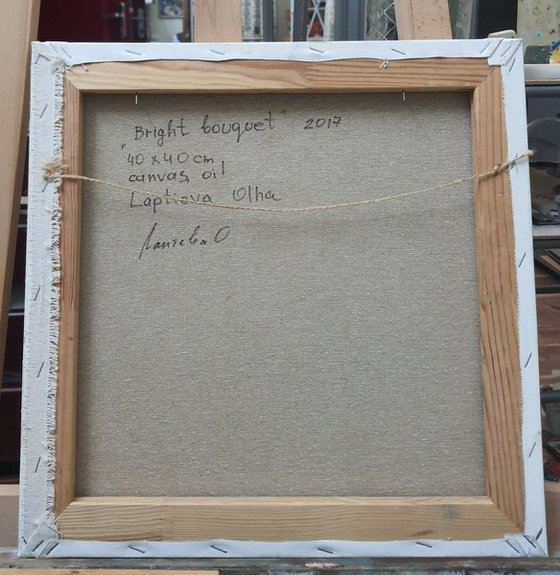 "Bright bouquet" 2017
40 x 40 cm
canvas, oil
Laptieva Olha
Лаптєва О